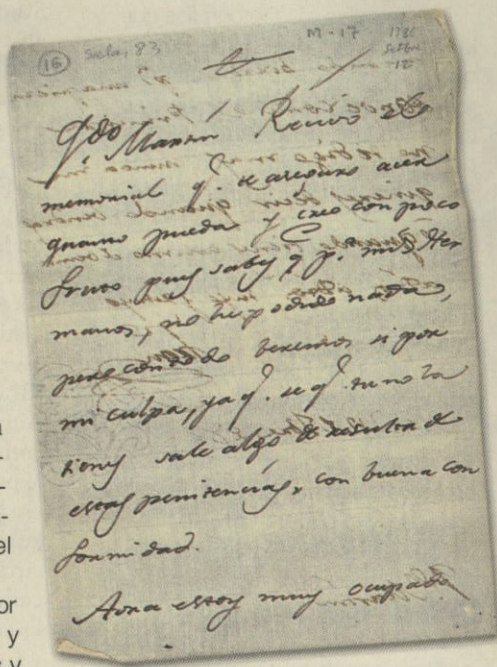 15 Sala, 83 M-17 1786
18
Qdo Martin Recivo el
memorial q. te aseguro acer
quanto pueda y creo con poco
fruto pues sabes q p.r mis Her
manos, no he podido nada,
pero con todo beremos si por
mi culpa, ya q. se q. tu no la
tienes sale algo de resulta de
estas penitencias, con buena con
formidad.
Aora estoy muy ocupado
a
-
-
-
el
or
y
s y